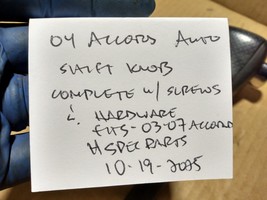 04 ACCORD AUTO
SHIFT KNOB
COMPLETE w/ SCREWS
L. HARDWARE
FITS-03-07 ACCORD
HSPEC PARTS
10-19-2025